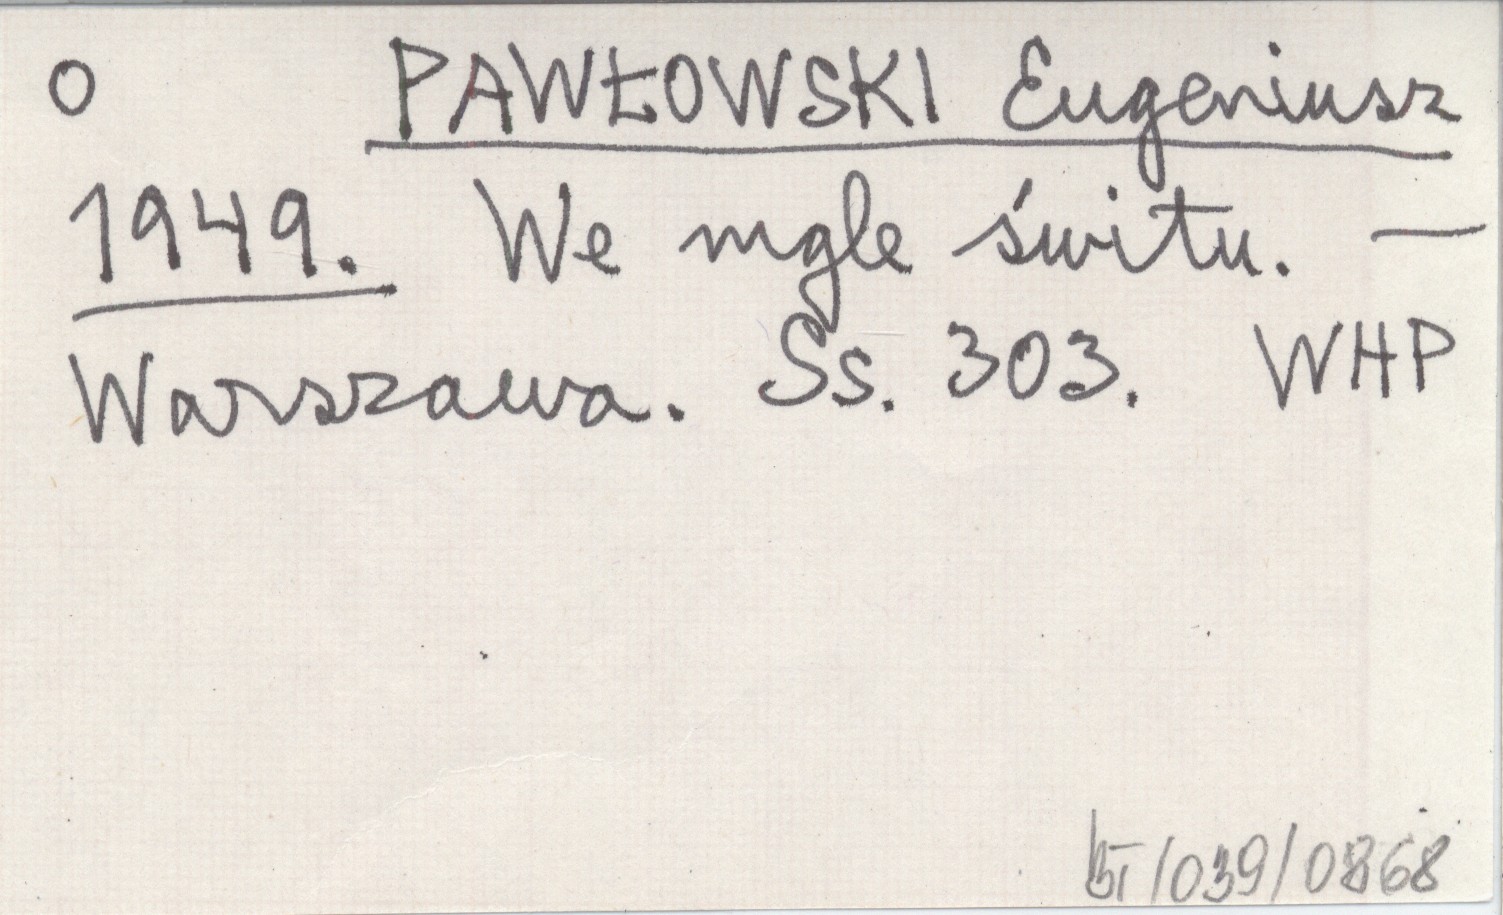 O PAWŁOWSKI Eugeniusz
1949. We mgle świtu. —
Warszawa. Ss. 303. WHP
/039/0868